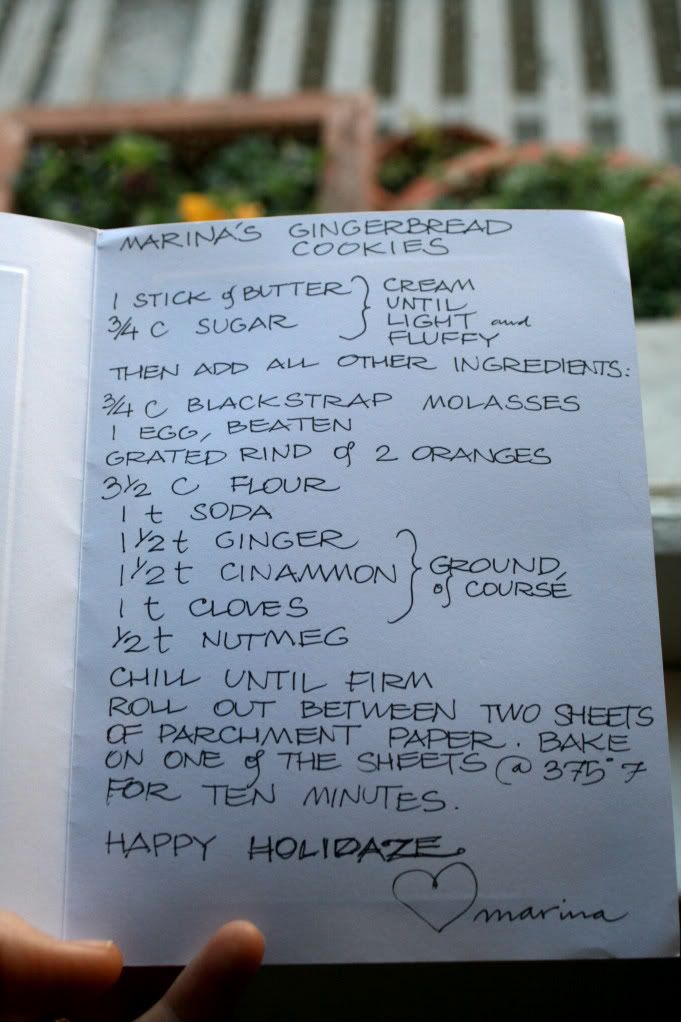 MARINA'S GINGERBREAD
COOKIES
1 STICK of BUTTER } CREAM
UNTIL
3/4 C SUGAR LIGHT and
FLUFFY
THEN ADD ALL OTHER INGREDIENTS:
3/4 C BLACKSTRAP MOLASSES
1 EGG, BEATEN
GRATED RIND of 2 ORANGES
3 1/2 C FLOUR
1 t SODA
1 1/2 t GINGER
1 1/2 t CINAMMON } GROUND,
of COURSE
1 t CLOVES
1/2 t NUTMEG
CHILL UNTIL FIRM
ROLL OUT BETWEEN TWO SHEETS
OF PARCHMENT PAPER. BAKE
ON ONE of THE SHEETS @ 375° F
FOR TEN MINUTES.
HAPPY HOLIDAZE.
♡ marina